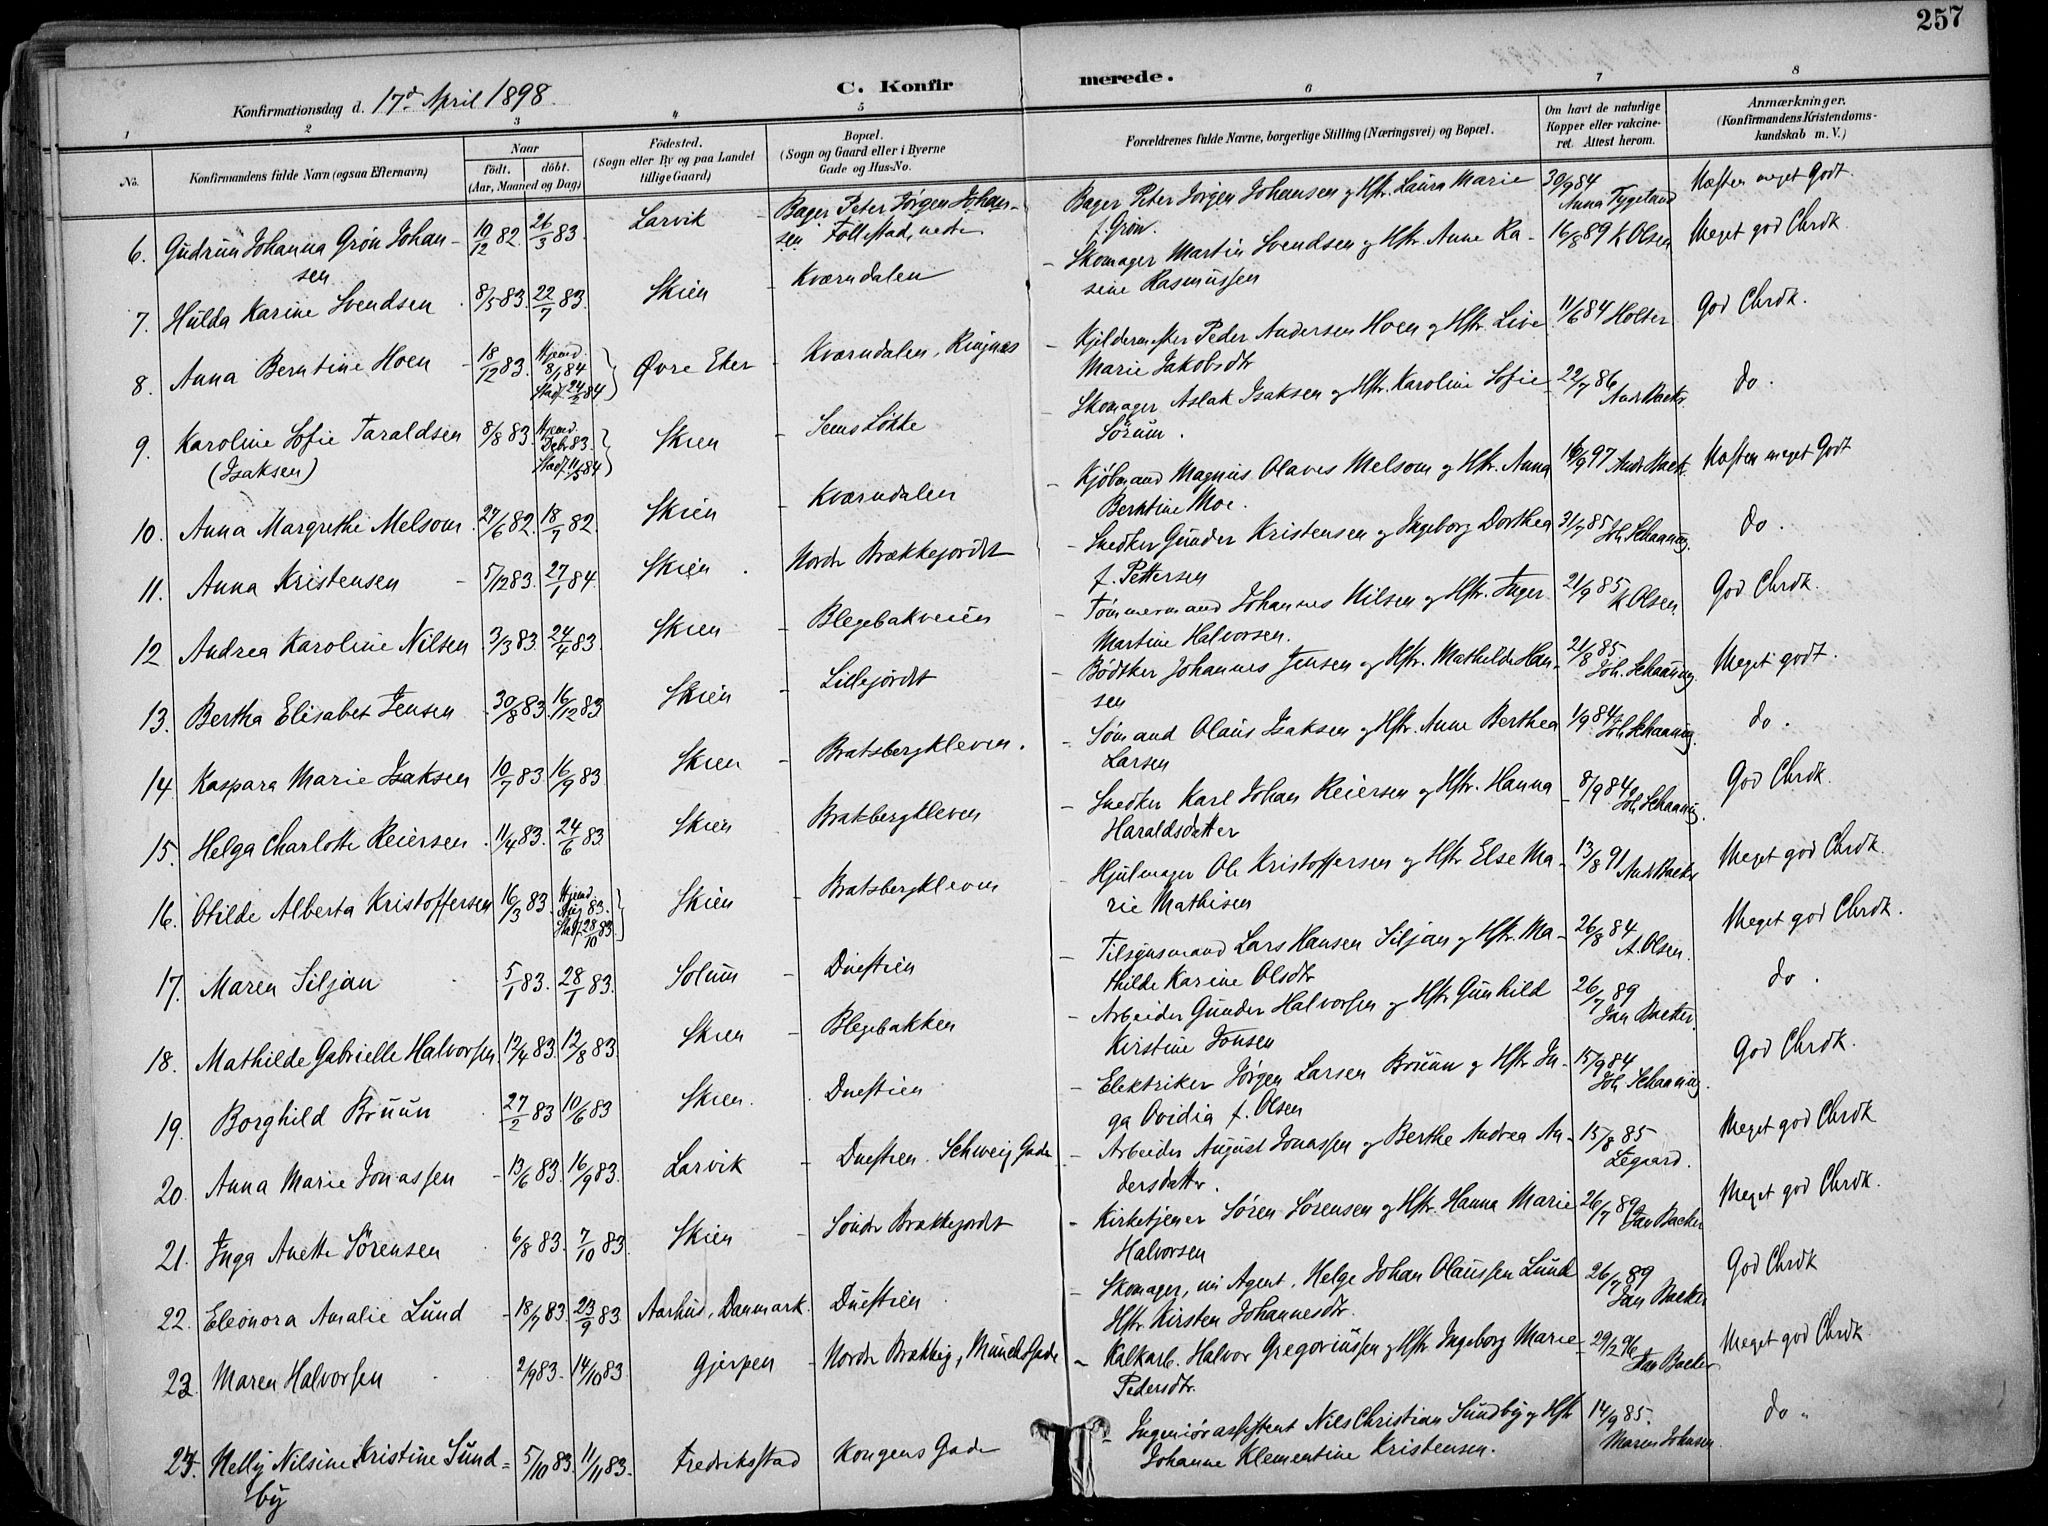 257
C. Konfirmerede.
Konfirmationsdag d. 17d April 1898.
1 2 3 4 5 6 7 8
No.
Konfirmandens fulde Navn (ogsaa Efternavn)
Naar
født. døbt.
(Aar, Maaned og Dag)
Fødested.
(Sogn eller By og paa Landet
tillige Gaard)
Bopæl.
(Sogn og Gaard eller i Byerne
Gade og Hus-No.
Forældrenes fulde Navne, borgerlige Stilling (Næringsvei) og Bopæl.
Om havt de naturlige
Kopper eller vakcine-
ret. Attest herom.
Anmærkninger.
(Konfirmandens Kristendoms-
kundskab m. V.)
6. Gudrun Johanna Grøn Johan- 10/12 82. 26/3 83. Larvik - Bager Peter Jørgen Johan- Bager Peter Jørgen Johansen og Hstr. Laura Marie 30/9 84 Næsten meget Godt
sen sen Follestad, nedre f. Grøn. Anna Tygestad
7. Hulda Karine Svendsen 8/5 83. 22/7 83. Skien - Kværndalen - Skomager Martin Svendsen og Hstr. Anne Ra- 16/8 89 K Olsen Meget god Chrdk.
sine Rasmussen
8. Anna Berntine Hoen - 18/12 83. Hjemd. 8/1 84 Stadf. 24/2 84 Øvre Eker - Kværndalen, Ringnæs - Kjeldermester Peder Andersen Hoen og Hstr. Live 11/6 84 Holter God Chrdk.
Marie Jakobsdtr
9. Karoline Sofie Taraldsen 8/8 83. Hjemd. Debr 83. Stadf. 11/5 84 Skien - Sems Løkke - Skomager Aslak Isaksen og Hstr. Karoline Sofie 22/7 86 do.
(Isaksen) Sørum. And. Backer
10. Anna Margrethe Melsom 27/6 82. 18/7 82. Skien - Kværndalen - Kjøbmand Magnus Olaves Melsom og Hstr. Anna 16/9 97 And. Back. Næsten meget Godt
Berntine Moe.
11. Anna Kristensen - 5/12 83. 27/1 84. Skien. Nordr Brækkejordet - Snedker Gunder Kristensen og Ingeborg Dorthea 31/7 85 Joh. Schaaning. do.
f. Pettersen
12 Andrea Karoline Nilsen 3/3 83. 24/4 83. Skien - Blegebakveien - Tømmermand Johannes Nilsen og Hstr. Inger 21/9 85 K Olsen. God Chrdk.
Martine Halvorsen.
13. Bertha Elisabet Jensen 30/8 83. 16/12 83 Skien - Lillejordet - Bødtker Johannes Jensen og Hstr. Mathilde Han- 21/8 85 Joh. Schaaning. Meget godt.
sen
14. Kaspara Marie Isaksen 10/7 83 16/9 83 Skien - Bratsbergkleven. - Sømand Olaus Isaksen og Hstr. Anne Berthea 1/9 84. Joh. Schaaning. do.
Larsen
15. Helga Charlotte Reiersen 11/4 83. 24/6 83. Skien - Bratsbergkleven - Snedker Karl Johan Reiersen og Hstr. Hanna 8/9 84. Joh. Schaaning. God Chrdk.
Haraldsdatter
16. Otilde Alberta Kristoffersen 16/3 83. Hjemd. Aug 83. Stadf. 28/10 83 Skien - Bratsbergkleven Hjulmager Ole Kristoffersen og Hstr Else Ma- 13/8 91 And. Backer Meget god Chrdk.
rie Mathisen
17. Maren Siljan 5/1 83. 28/1 83. Solum - Duestien - Tilsynsmand Lars Hansen Siljan og Hstr. Ma- 26/8 84 A. Olsen. Meget god Chrdk.
thilde Karine Olsdtr
18. Mathilde Gabrielle Halvorsen. 12/4 83. 12/8 83. Skien - Blegebakken - Arbeider Gunder Halvorsen og Hstr Gunhild 26/7 89 Jan Backer. do.
Kirstine Jonsen
19. Borghild Bruun 27/2 83 10/6 83 Skien. Duestien - Elektriker Jørgen Larsen Bruun og Hstr In- 15/9 84 Joh. Schaaning. God Chrdk.
ga Ovidia f. Olsen
20. Anna Marie Jonassen - 13/6 83. 16/9 83. Larvik - Duestien. Schweig Gade - Arbeider August Jonassen og Berthe Andrea An- 15/8 85 Legaard. Meget god Chrdk
dersdatter.
21. Inga Anette Sørensen 6/8 83. 7/10 83. Skien - Søndr Brækkejordet - Kirketjener Søren Sørensen og Hstr. Hanna Marie 26/7 89. Jan Backer Meget god Chrdk.
Halvorsen
22. Eleonora Amalie Lund - 18/7 83. 23/9 83. Aarhus, Danmark. Duestien - Skomager, nu Agent. Helge Johan Olaussen Lund 26/7 89 Jan Backer God Chrdk
Hstr Kirsten Johannesdtr.
23. Maren Halvorsen 2/9 83. 14/10 83. Gjerpen - Nordr Brækkeg, Munchs Gade - Kalkarb. Halvor Gregoriussen og Hstr Ingeborg Marie 29/2 96 Jan Backer Meget god Chrdk
Pedersdtr.
24. Nelly Nilsine Kristine Sund- 5/10 83. 11/11 83. Fredriksstad Kongens Gade - Ingeniørassistent Nils Christian Sundby og Hstr 14/9 85. do.
by Johanne Klementine Kristensen. Maren Johnsen.